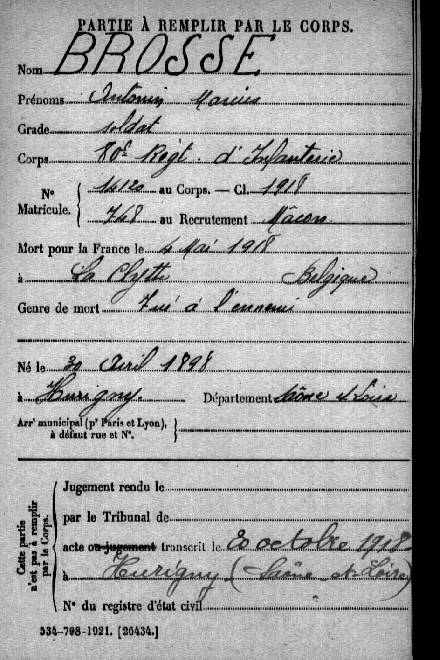 PARTIE À REMPLIR PAR LE CORPS.
Nom BROSSE
Prénoms Antonin Marius
Grade soldat
Corps 80e Régt. d'Infanterie
No Matricule. 14120 au Corps. — Cl. 1918
748 au Recrutement Mâcon
Mort pour la France le 4 Mai 1918
à La Clytte Belgique
Genre de mort Tué à l'ennemi
Né le 30 Avril 1898
à Hurigny. Département Saône et Loire
Arrt municipal (pr Paris et Lyon),
à défaut rue et No.
Cette partie
n'est pas à remplir
par le Corps.
Jugement rendu le
par le Tribunal de
acte ou jugement transcrit le 20 octobre 1918
à Hurigny (Saône et Loire)
No du registre d'état civil
534-708-1921. [26434.]